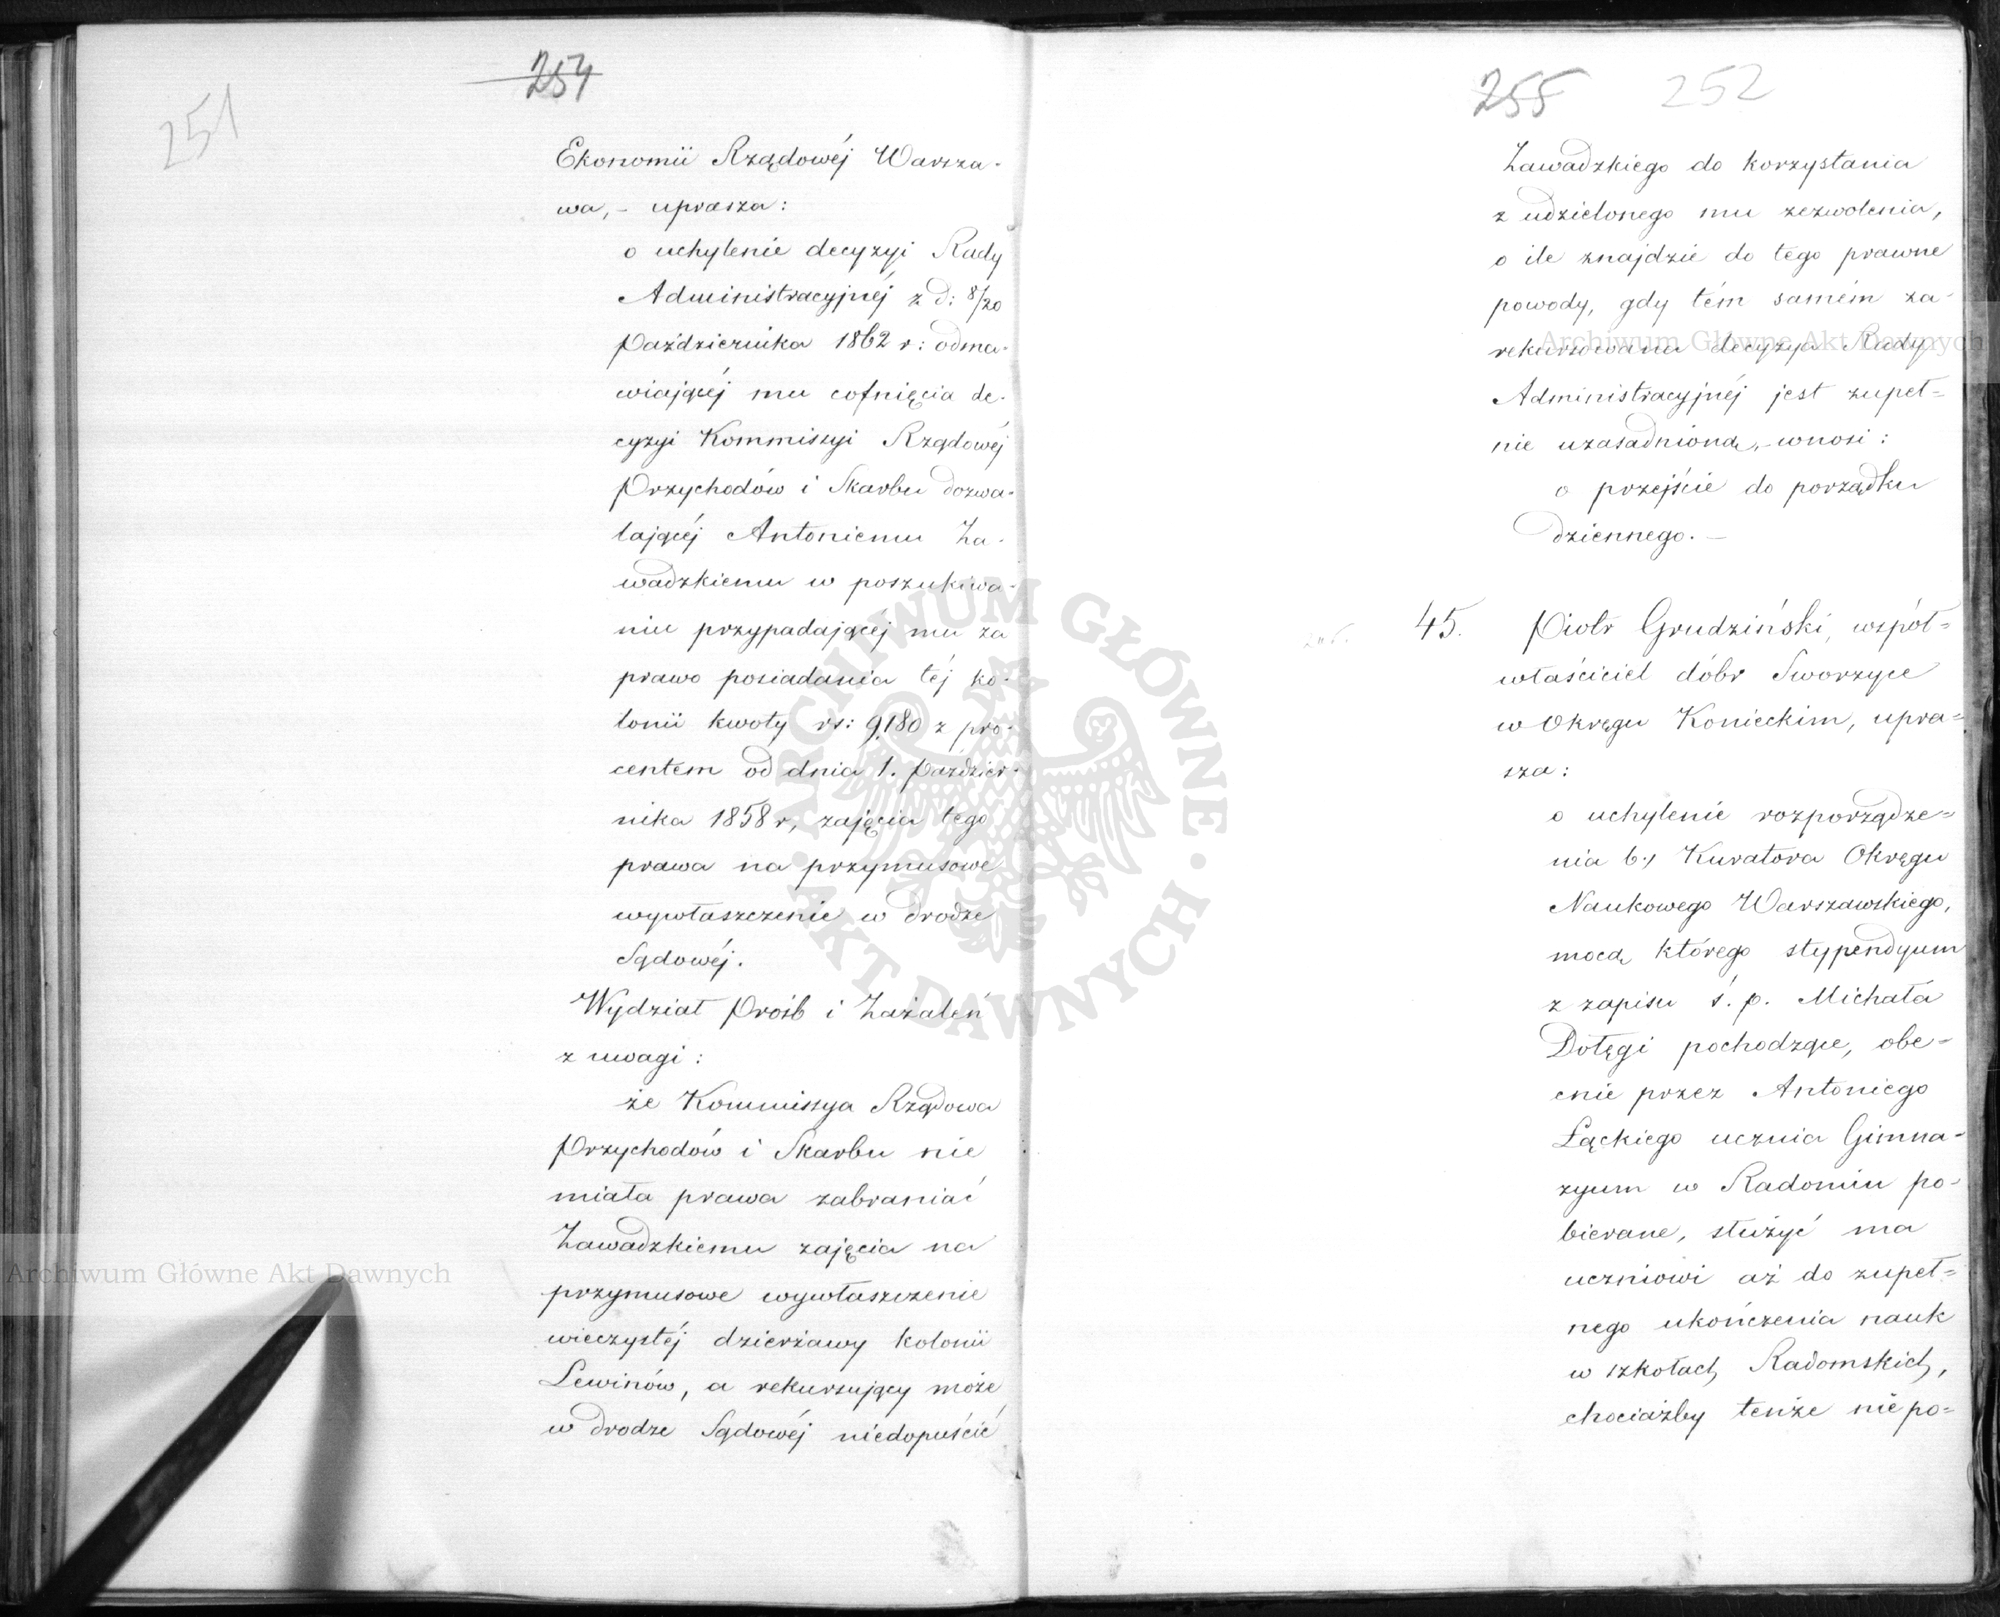 251
254
Ekonomii Rządowéj Warsza-
wa, - uprasza:
o uchylenie decyzyi Rady
Administracyjnéj z d: 8/20
Października 1862 r: odma-
wiającéj mu cofnięcia de-
cyzyi Kommissyi Rządowéj
Przychodów i Skarbu dozwa-
lającéj Antoniemu Za-
wadzkiemu w poszukiwa-
niu przypadającéj mu za
prawo posiadania téj ko-
lonii kwoty rs: 9,180 z pro-
centem od dnia 1. Paździer-
nika 1858 r, zajęcia tego
prawa na przymusowe
wywłaszczenie w drodze
Sądowéj.
Wydział Próśb i Zażaleń
z uwagi:
że Kommissya Rządowa
Przychodów i Skarbu nie
miała prawa zabraniać
Zawadzkiemu zajęcia na
przymusowe wywłaszczenie
wieczystéj dzierżawy kolonii
Lewinów, a rekursujący może
w drodze Sądowéj niedopuścić
255 252
Zawadzkiego do korzystania
z udzielonego mu zezwolenia,
o ile znajdzie do tego prawne
powody, gdy tém samém za-
rekursowana decyzya Rady
Administracyjnéj jest zupeł=
nie uzasadnioną, - wnosi:
o przejście do porządku
dziennego. -
45. Piotr Grudziński, współ=
właściciel dóbr Sworzyce
w Okręgu Konieckim, upra=
sza:
o uchylenie rozporządze=
nia b. Kuratora Okręgu
Naukowego Warszawskiego,
mocą którego stypendyum
z zapisu ś. p. Michała
Dołęgi pochodzące, obe=
cnie przez Antoniego
Łąckiego ucznia Gimna-
zyum w Radomiu po-
bierane, służyć ma
uczniowi aż do zupeł=
nego ukończenia nauk
w szkołach Radomskich,
chociażby tenże nie po=
Archiwum Główne Akt Dawnych
Archiwum Główne Akt Dawnych
ARCHIWUM GŁÓWNE
AKT DAWNYCH